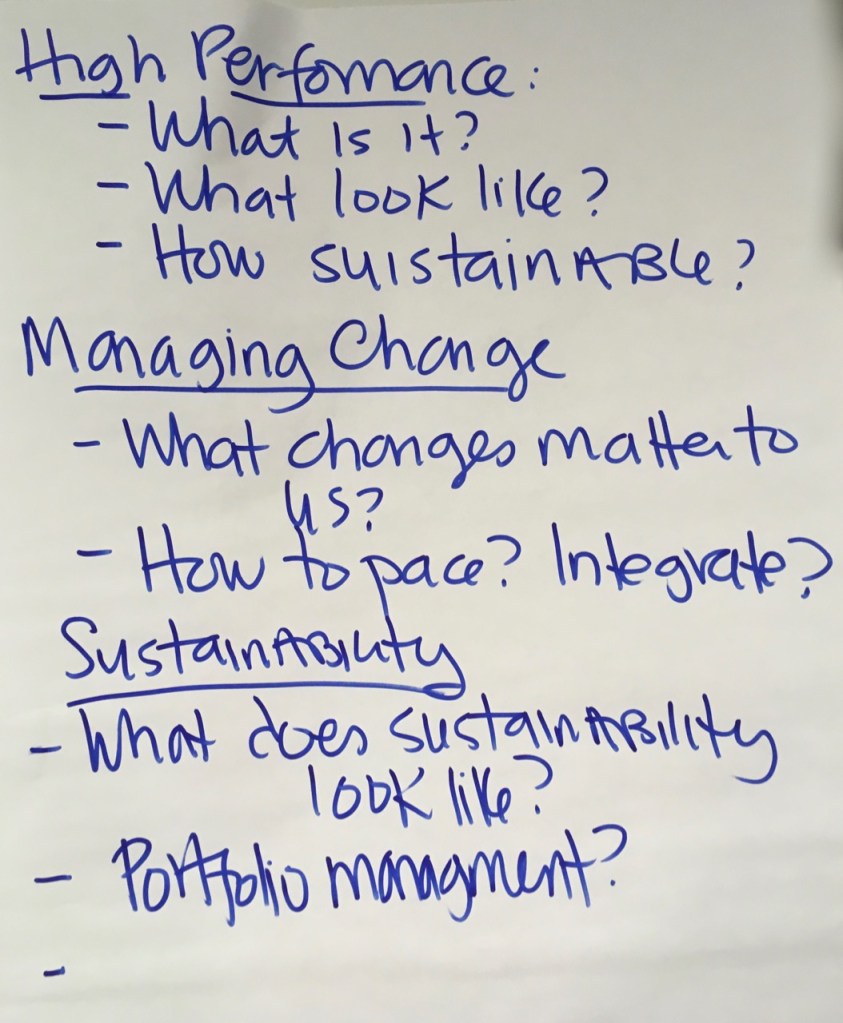 High Perfomance:
- What is it?
- What look like?
- How suistainABle?
Managing Change
- What changes matter to
us?
- How to pace? Integrate?
SustainABility
- What does sustainABility
look like?
- Portfolio managment?
-